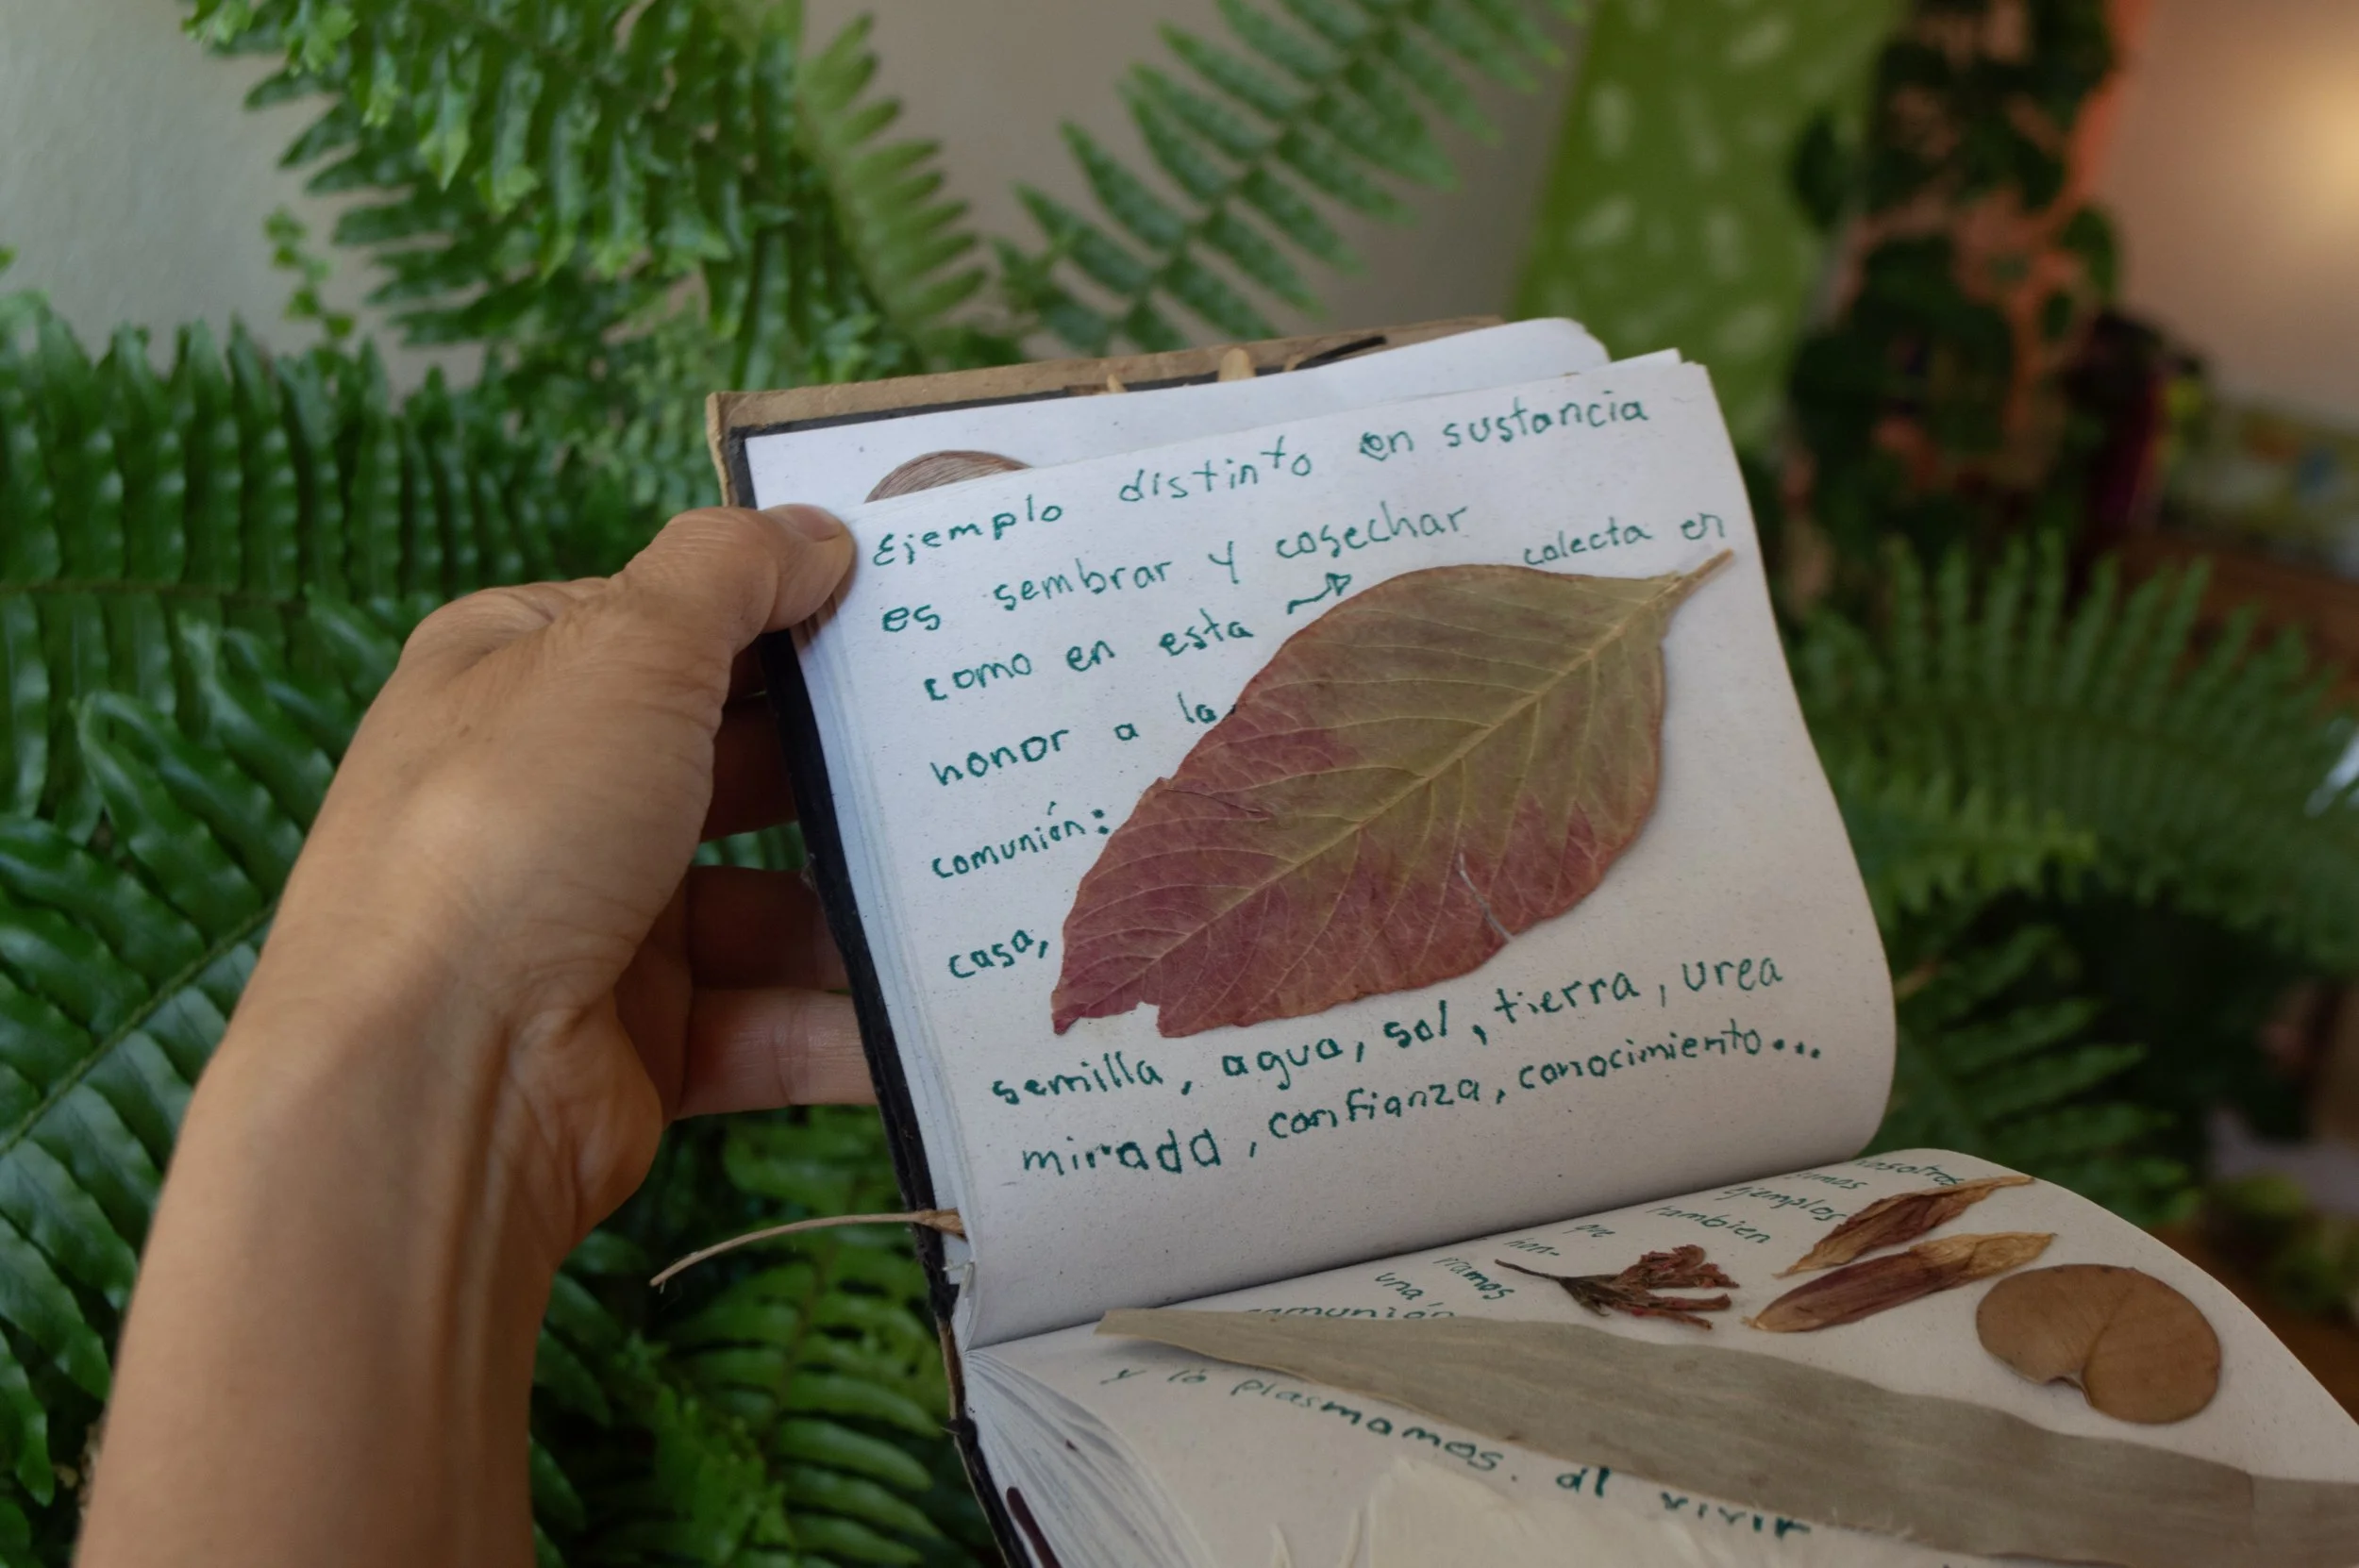 Ejemplo distinto en sustancia
es sembrar y cosechar
como en esta → colecta en
honor a la
comunión:
casa,
semilla, agua, sol, tierra, urea
mirada, confianza, conocimiento...
ejemplos
tambien
que
hon-
ramos
una
comunión
y lo plasmamos. al vivir